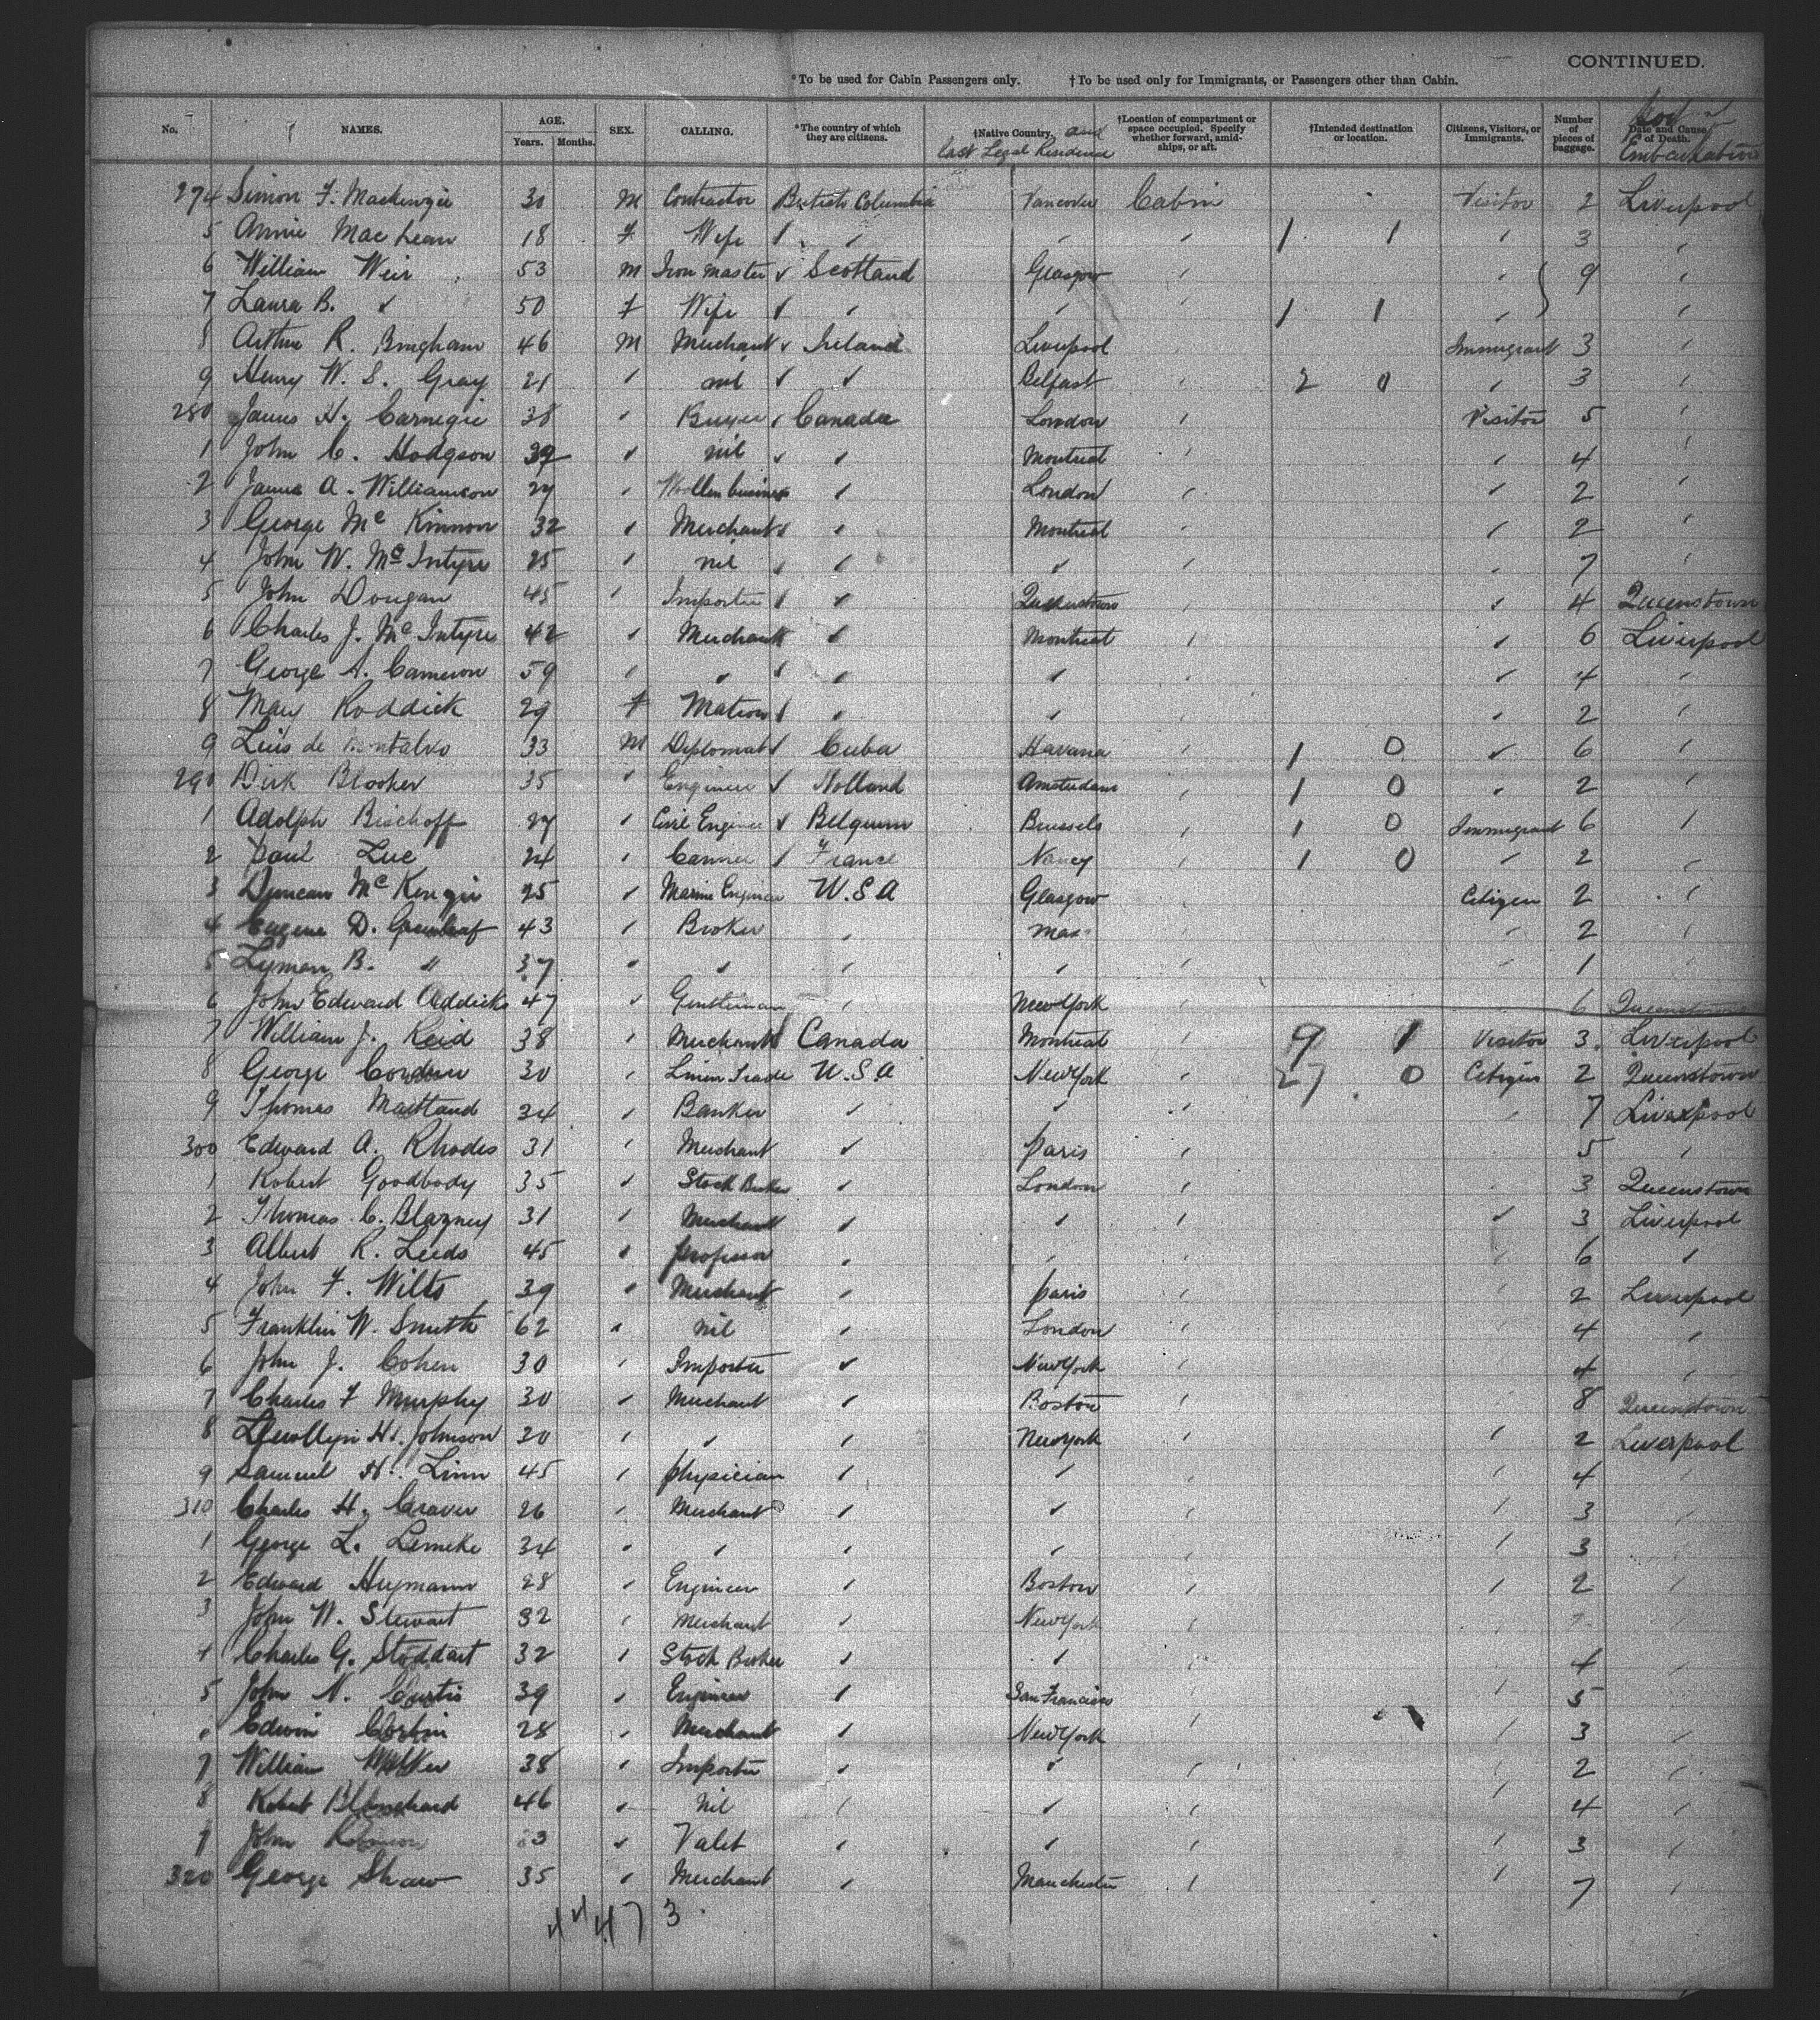 CONTINUED.
*To be used for Cabin Passengers only. †To be used only for Immigrants, or Passengers other than Cabin.
No. NAMES. AGE. Years. Months. SEX. CALLING. *The country of which they are citizens. †Native Country, and last Legal Residence †Location of compartment or space occupied. Specify whether forward, amidships, or aft. †Intended destination or location. Citizens, Visitors, or Immigrants. Number of pieces of baggage. Date and Cause of Death. Port Embarkation
274 Simon F. Mackenzie 30 M Contractor British Columbia Vancouver Cabin Visitor 2 Liverpool
5 Annie MacLean 18 F Wife " " " 1 1 " 3 "
6 William Weir 53 M Iron Master Scotland Glasgow " " 9 "
7 Laura B. " 50 F Wife " " " 1 1 " "
8 Arthur R. Bingham 46 M Merchant Ireland Liverpool " Immigrant 3 "
9 Henry W. S. Gray 21 " nil " Belfast " 2 0 " 3 "
280 James H. Carnegie 38 " Buyer Canada London " Visitor 5 "
1 John C. Hodgson 39 " nil " Montreal " " 4 "
2 James A. Williamson 27 " Wollen business " London " " 2 "
3 George Mc Kinnon 32 " Merchant " Montreal " " 2 "
4 John W. McIntyre 25 " nil " " " " 7 "
5 John Dougan 45 " Importer " Queenstown " " 4 Queenstown
6 Charles J. McIntyre 42 " Merchant " Montreal " " 6 Liverpool
7 George A. Cameron 59 " " " " " " 4 "
8 Mary Roddick 29 F Matron " " " " 2 "
9 Luis de Montalvo 33 M Diplomat Cuba Havana " 1 0 " 6 "
290 Dirk Blooker 35 " Engineer Holland Amsterdam " 1 0 " 2 "
1 Adolph Bischoff 27 " Civil Engineer Belgium Brussels " 1 0 Immigrant 6 "
2 Paul Luc 24 " France Nancy " 1 0 " 2 "
3 Duncan McKenzie 25 " Marine Engineer U.S.A Glasgow Citizen 2 "
4 Eugene D. Greenleaf 43 " Broker " Mas " " 2 "
5 Lyman B. " 37 " " " " " " 1 "
6 John Edward Addicks 47 " Gentleman " New York " 6 Queenstown
7 William J. Reid 38 " Merchant Canada Montreal " 9 1 Visitor 3 Liverpool
8 George 30 " Linen Trade U.S.A New York " 27 0 Citizen 2 Queenstown
9 Thomas Maitland 34 " Banker " " " " 7 Liverpool
300 Edward A. Rhodes 31 " Merchant " Paris " 5 "
1 Robert Goodbody 35 " Stock Broker " London " 3 Queenstown
2 Thomas C. Blazney 31 " Merchant " " " " 3 Liverpool
3 Albert R. Leeds 45 " Professor " " " " 6 "
4 John F. Wilts 39 " Merchant " Paris " " 2 Liverpool
5 Franklin W. Smith 62 " nil " London " " 4 "
6 John J. Cohen 30 " Importer " New York " " 4 "
7 Charles F Murphy 30 " Merchant " Boston " " 8 Queenstown
8 Llewllyn H. Johnson 30 " " " New York " " 2 Liverpool
9 Samuel H. Linn 45 " Physician " " " " 4 "
310 Charles H. Craver 26 " Merchant " " " " 3 "
1 George L. Lemeke 34 " " " " " " 3 "
2 Edward Heymann 28 " Engineer " Boston " " 2 "
3 John W. Stewart 32 " Merchant " New York " "
4 Charles G. Stoddart 32 " Stock Broker " " " " 4 "
5 John N. Curtis 39 " Engineer " San Francisco " " 5 "
Edwin Corbin 28 " Merchant " New York " " 3 "
7 William Walker 38 " Importer " " " " 2 "
8 Robert Blanchard 46 " Nil " " " " 4 "
John 3 " Valet " " " " 3 "
320 George Shaw 35 " Merchant " Manchester " " 7 "
44 47 3